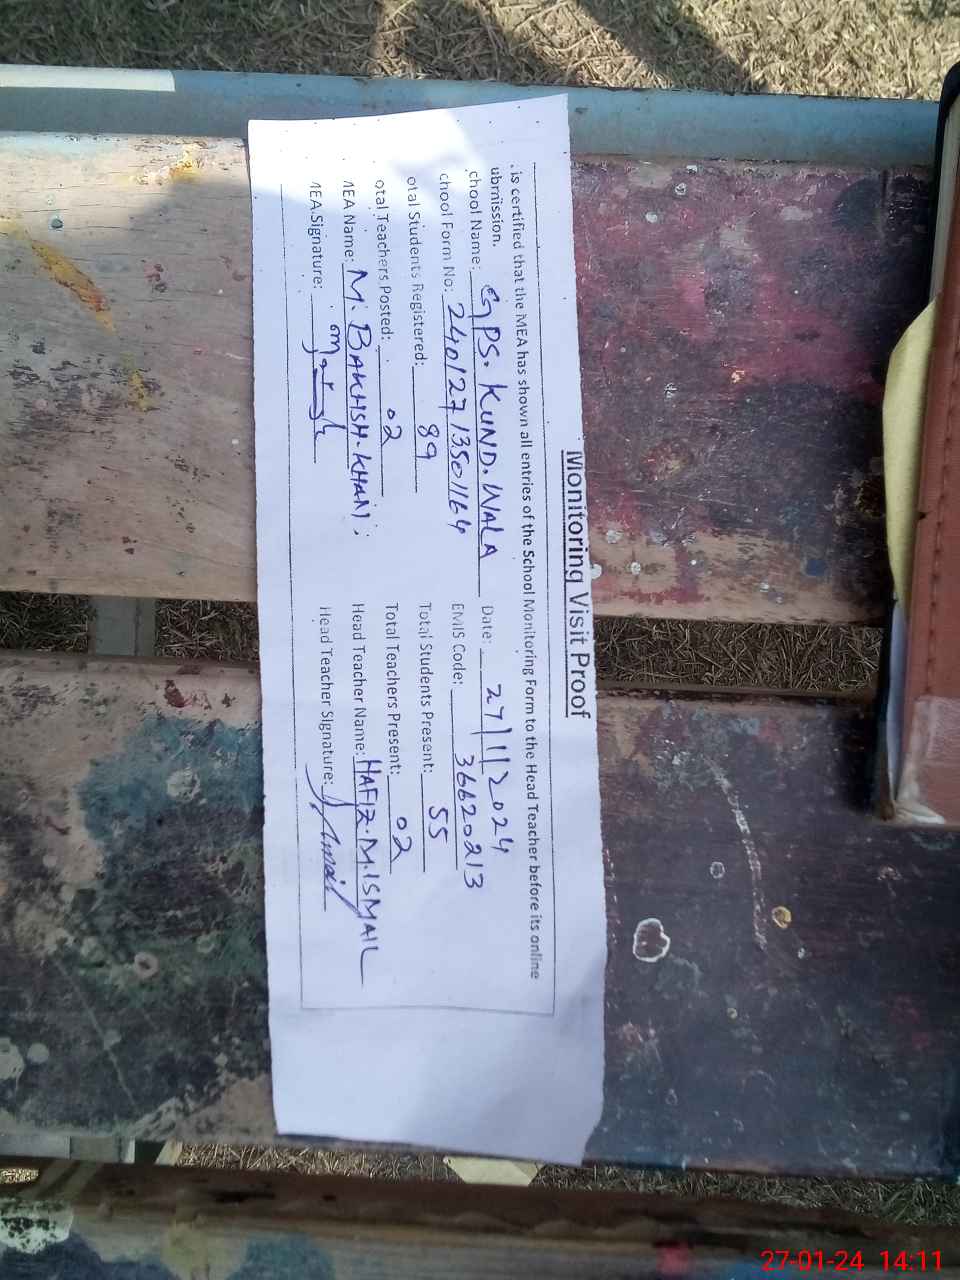 Monitoring Visit Proof
. is certified that the MEA has shown all entries of the School Monitoring Form to the Head Teacher before its online
ubmission.
chool Name: GPS. KUND. WALA Date: 27/1/2024
chool Form No: 24012713501164 EMIS Code: 36620213
otal Students Registered: 89 Total Students Present: 55
otal Teachers Posted: 02 Total Teachers Present: 02
MEA Name: M. BAKHSH. KHAN; Head Teacher Name: HAFIZ. M. ISMAIL
MEA Signature: Head Teacher Signature:
27-01-24 14:11